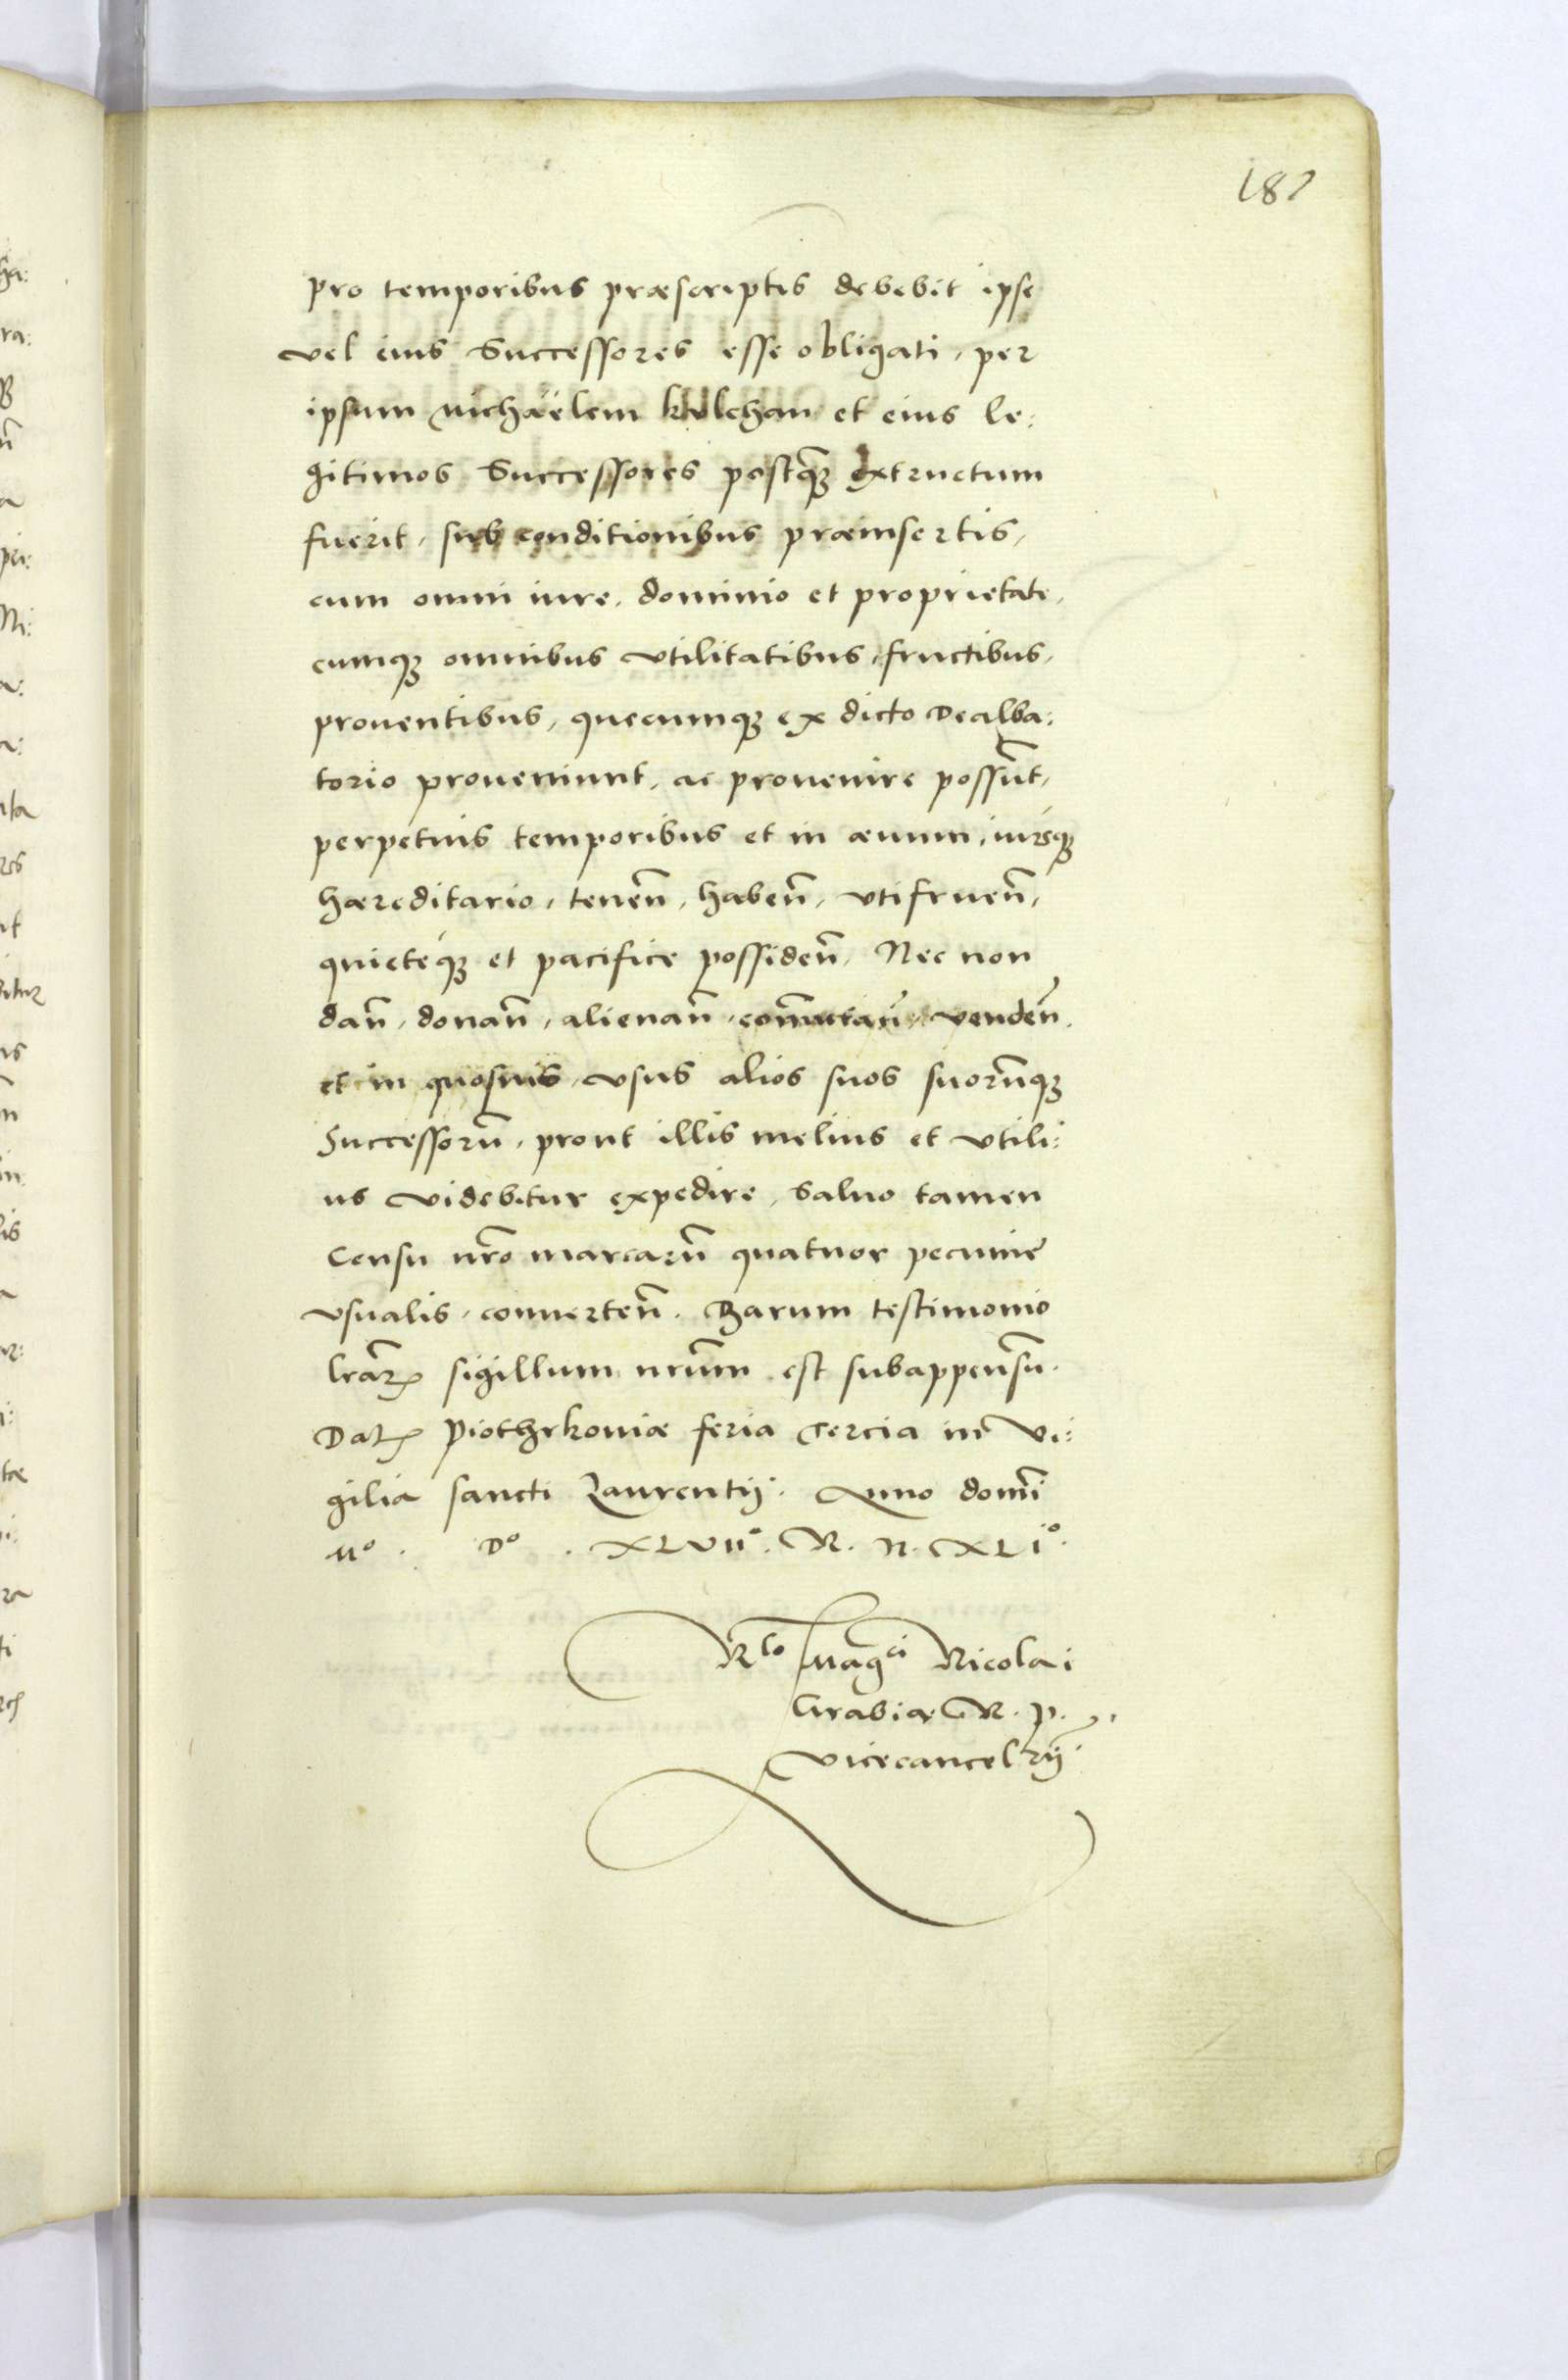 187
pro temporibus præscriptis debebit ipse
vel eius Successores esse obligati, per
ipsum Michaëlem et eius le:
gitimos Successores postq̃ꝫ extructum
fuerit, sub conditionibus præinsertis,
cum omni iure, dominio et proprietate,
cumqꝫ omnibus vtilitatibus, fructibus,
prouentibus, quecumqꝫ ex dicto Dealba:
torio proueniunt, ac prouenire possũt,
perpetuis temporibus et in æuum, iuréqꝫ
hæreditario, teneñ, habeñ, vtifrueñ,
quietéqꝫ et pacifice possideñ, Nec non
dañ, donañ, alienañ, com̃utañ, vendeñ,
et in quosuis vsus alios suos suorũqꝫ
Successorũ, prout illis melius et vtili:
us videbitur expedire, Saluo tamen
Censu nr̃o marcarũ quatuor pecuniæ
vsualis, conuerteñ. Harum testimonio
lr̃arꝝ sigillum nr̃um est subappensũ.
Datꝝ Piothrkouiæ feria Tercia in Vi:
gilia Sancti Laurentij. Anno domĩ
Mº. Dº. XLVIIº. R. N. XLIº.
Rlo Magci Nicolai
Grabia R. P.
Vicecancelrij.